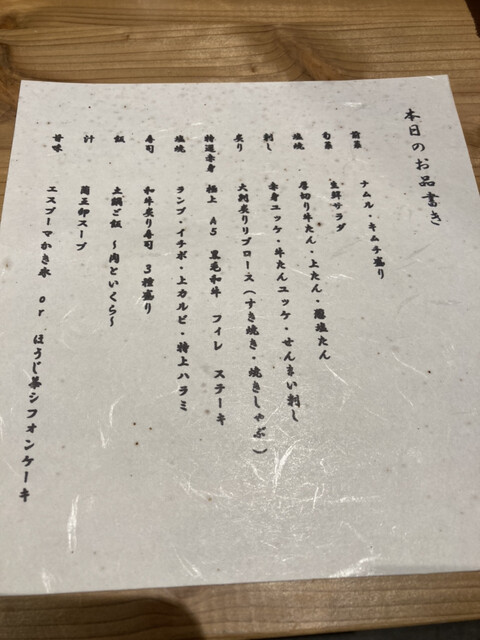 本日のお品書き
前菜 ナムル・キムチ盛り
旬菜 生鮮サラダ
塩焼 厚切り牛たん・上たん・葱塩たん
刺し 赤身ユッケ・牛たんユッケ・せんまい刺し
炙り 大判炙りリブロース(すき焼き・焼きしゃぶ)
特選赤身 極上 A5 黒毛和牛 フィレ ステーキ
塩焼 ランプ・イチボ・上カルビ・特上ハラミ
寿司 和牛炙り寿司 3種盛り
飯 土鍋ご飯 〜肉といくら〜
汁 蘭王卵スープ
甘味 エスプーマかき氷 or ほうじ茶シフォンケーキ